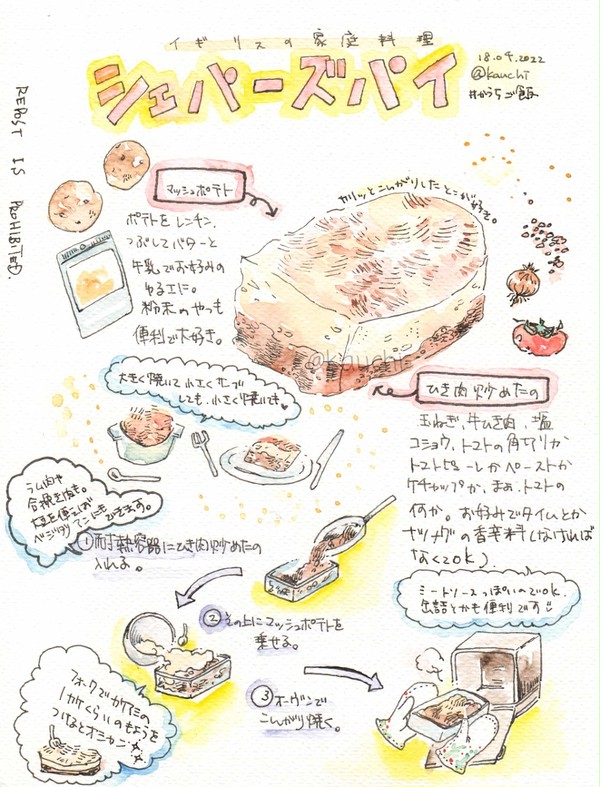 イギリスの家庭料理
シェパーズパイ
18.04.2022
@kauchi
#かうちご飯
REPOST IS PROHIBITED.
マッシュポテト
ポテトをレンチン、
つぶしてバターと
牛乳でお好みの
ゆるエに。
粉末のやつも
便利で大好き。
カリッとこんがりしたとこが好き。
@kauchi
ひき肉炒めたの
玉ねぎ、牛ひき肉、塩
コショウ、トマトの角切りか
トマトピューレかペーストか
ケチャップか、まぁ、トマトの
何か。お好みでタイムとか
ナツメグの香辛料(なければ
なくてOK)
大きく焼いて小さくサーブ
しても、小さく焼いても
ラム肉や
合挽き肉でも。
大豆を使えば
ベジタリアンにもできます。
①耐熱容器にひき肉炒めたの
入れる。
ミートソースっぽいのでOK。
缶詰とかも便利です
②その上にマッシュポテトを
乗せる。
③オーヴンで
こんがり焼く。
フォークでガイコツの
つけるとオシャン